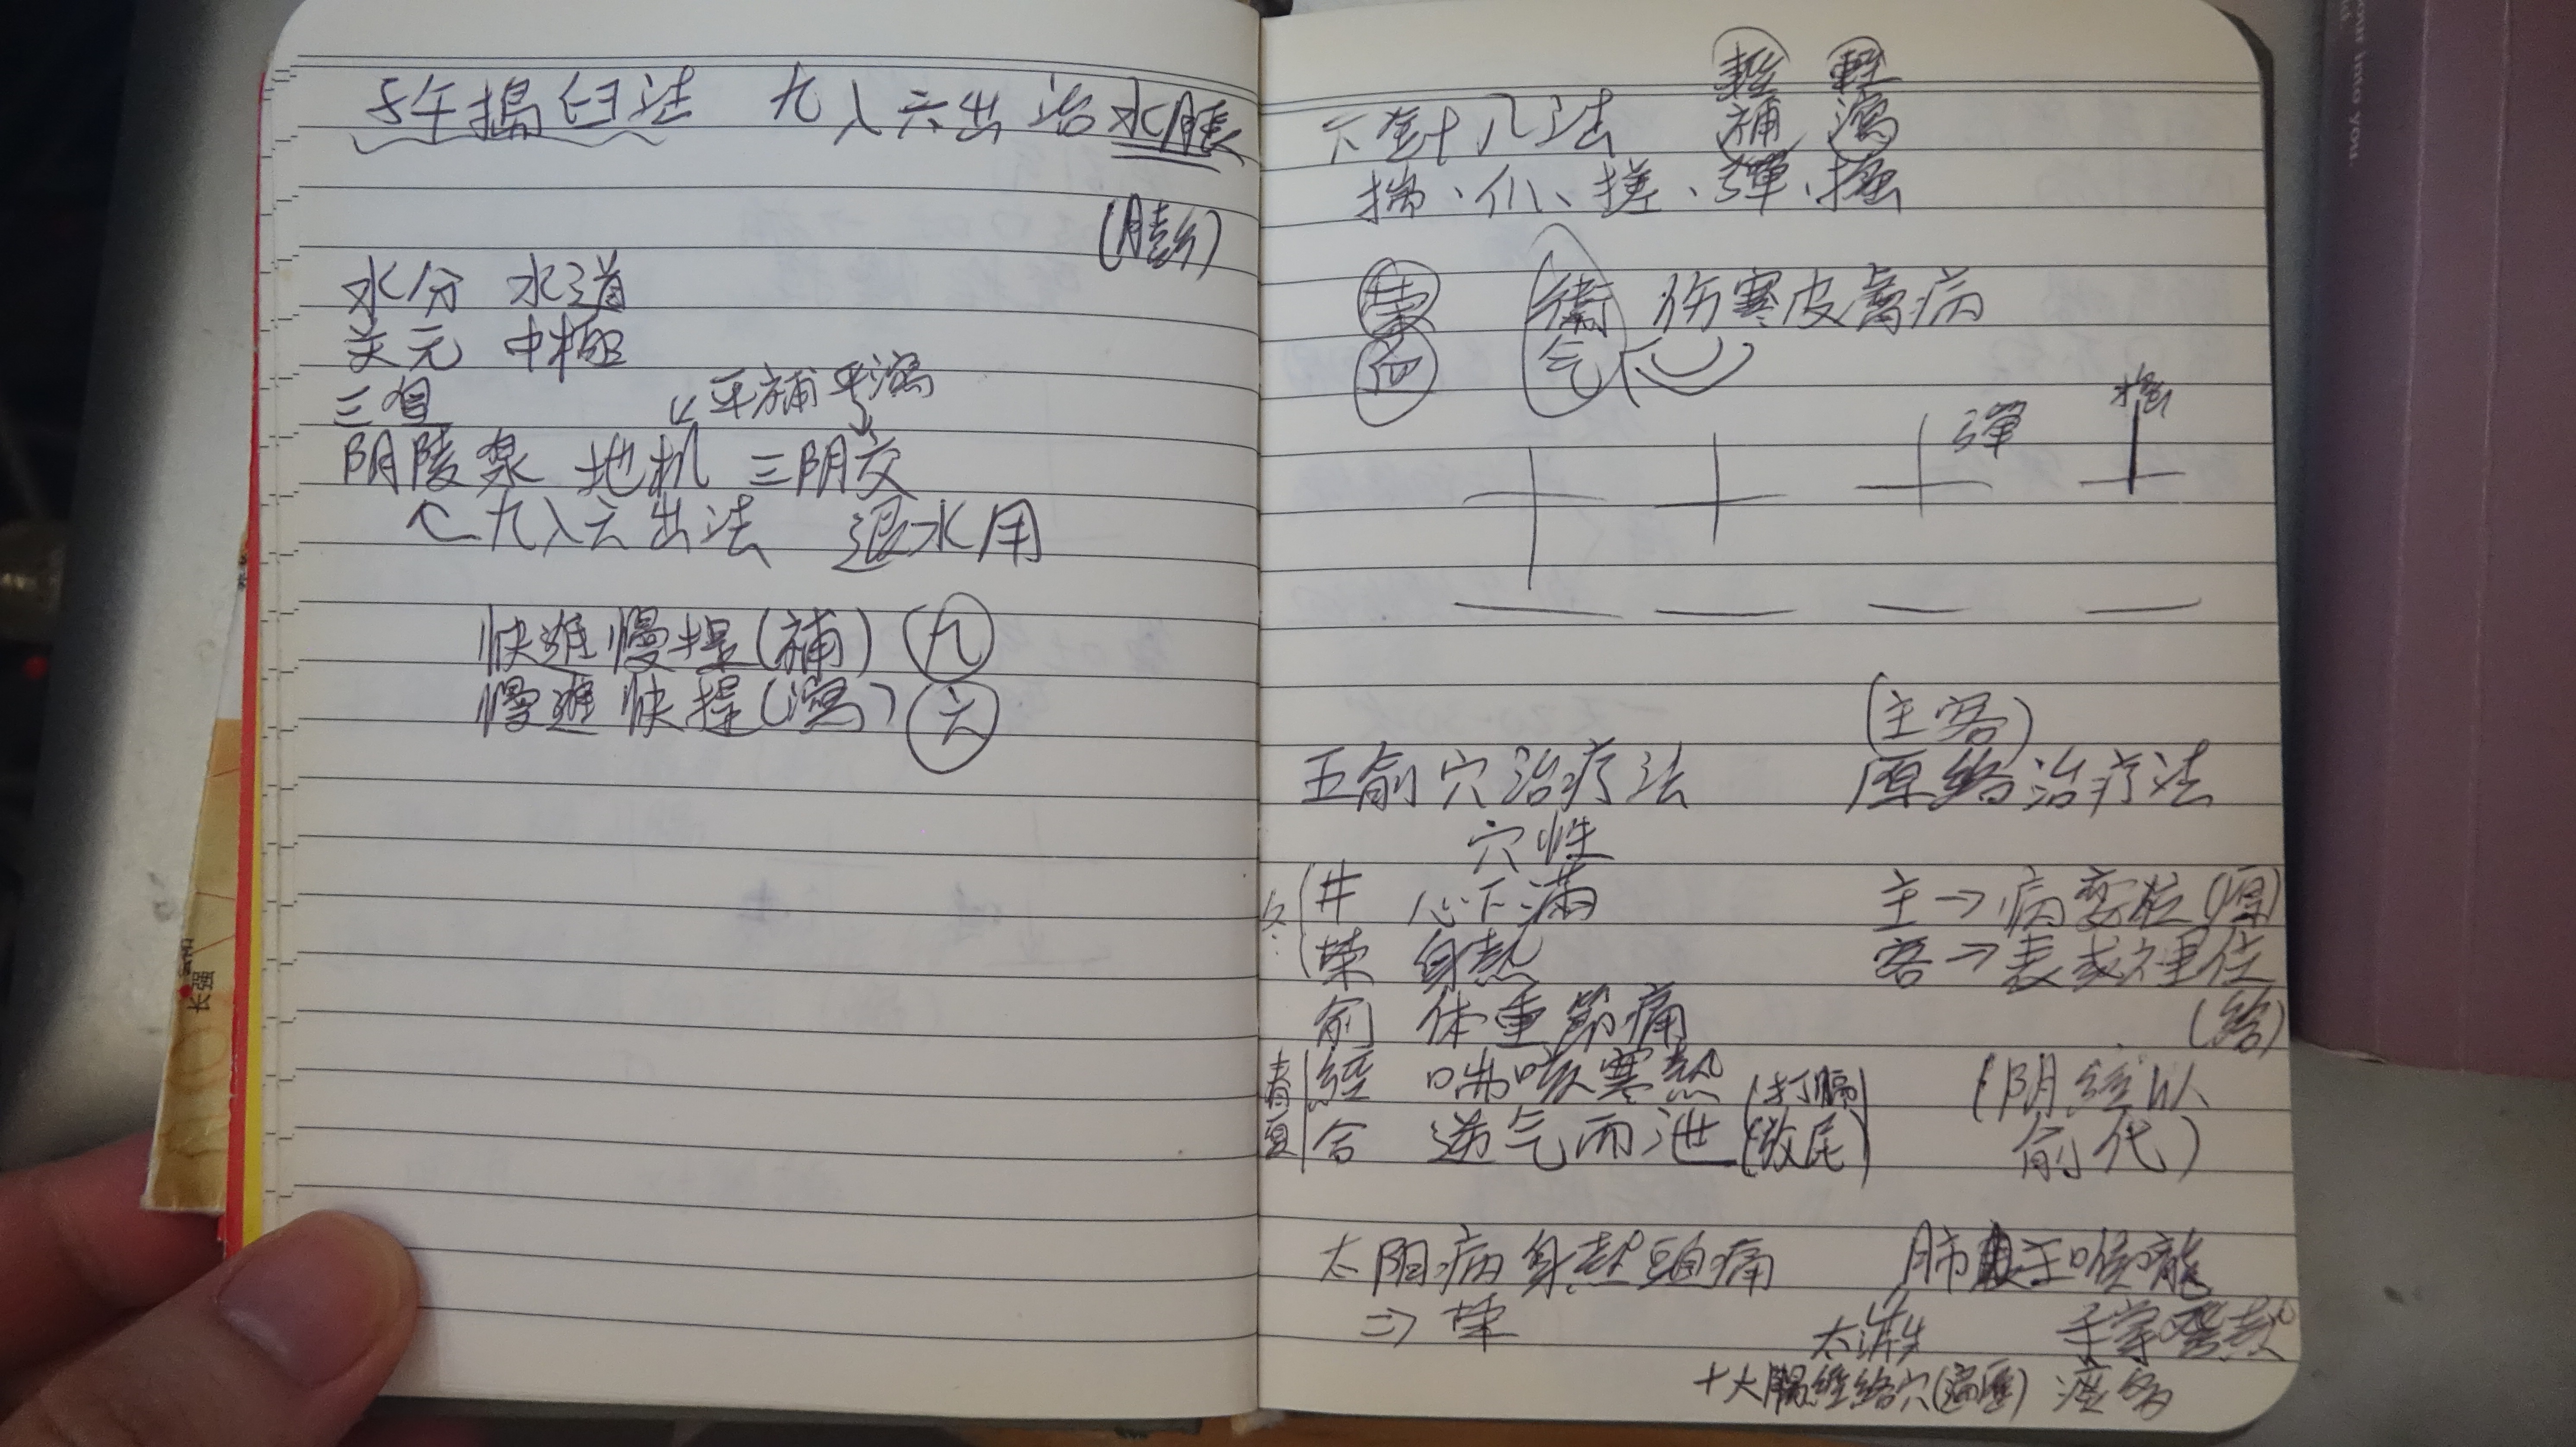 子午搗臼法 九入六出 治水脹
水分 水道
关元 中極
三焦
平補平瀉
阴陵泉 地机 三阴交
九入六出法 退水用
快進慢提(補) 九
慢進快提(瀉) 六
长强
下針十八法 補 瀉
揣、爪、搓、彈、搖
荣 衛 伤寒皮膚病
血 气
彈
(主客)
五俞穴治疗法 原络治疗法
穴性
井 心下滿 主→病变位(原)
荣 身熱 客→表或裡位
俞 体重節痛 (络)
春 經 喘咳寒熱 (阴經以
夏 合 逆气而泄 俞代)
太阳病身熱頭痛
⇒ 荣
太淵 手掌發熱
十大腸經络穴(偏歷)